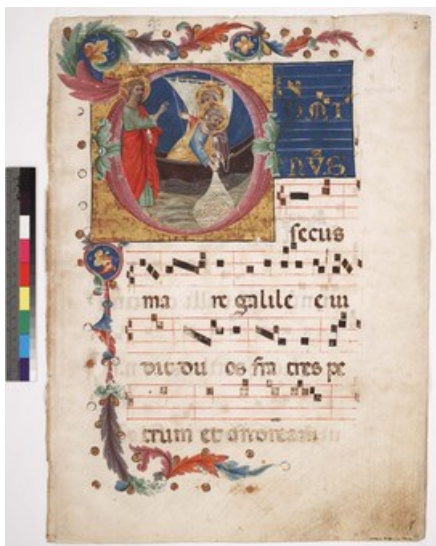 NVS
secus
ma re galile e ui
dit du os fra tres pe
trum et andream